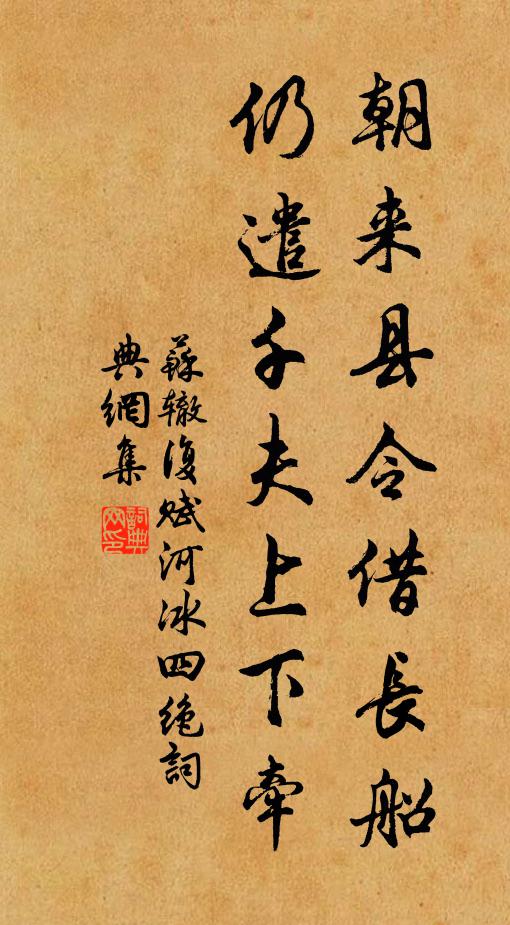 朝来县令借長船
仍遣千夫上下牵
蘇辙復赋河冰四绝詞
典網集
詞典網印